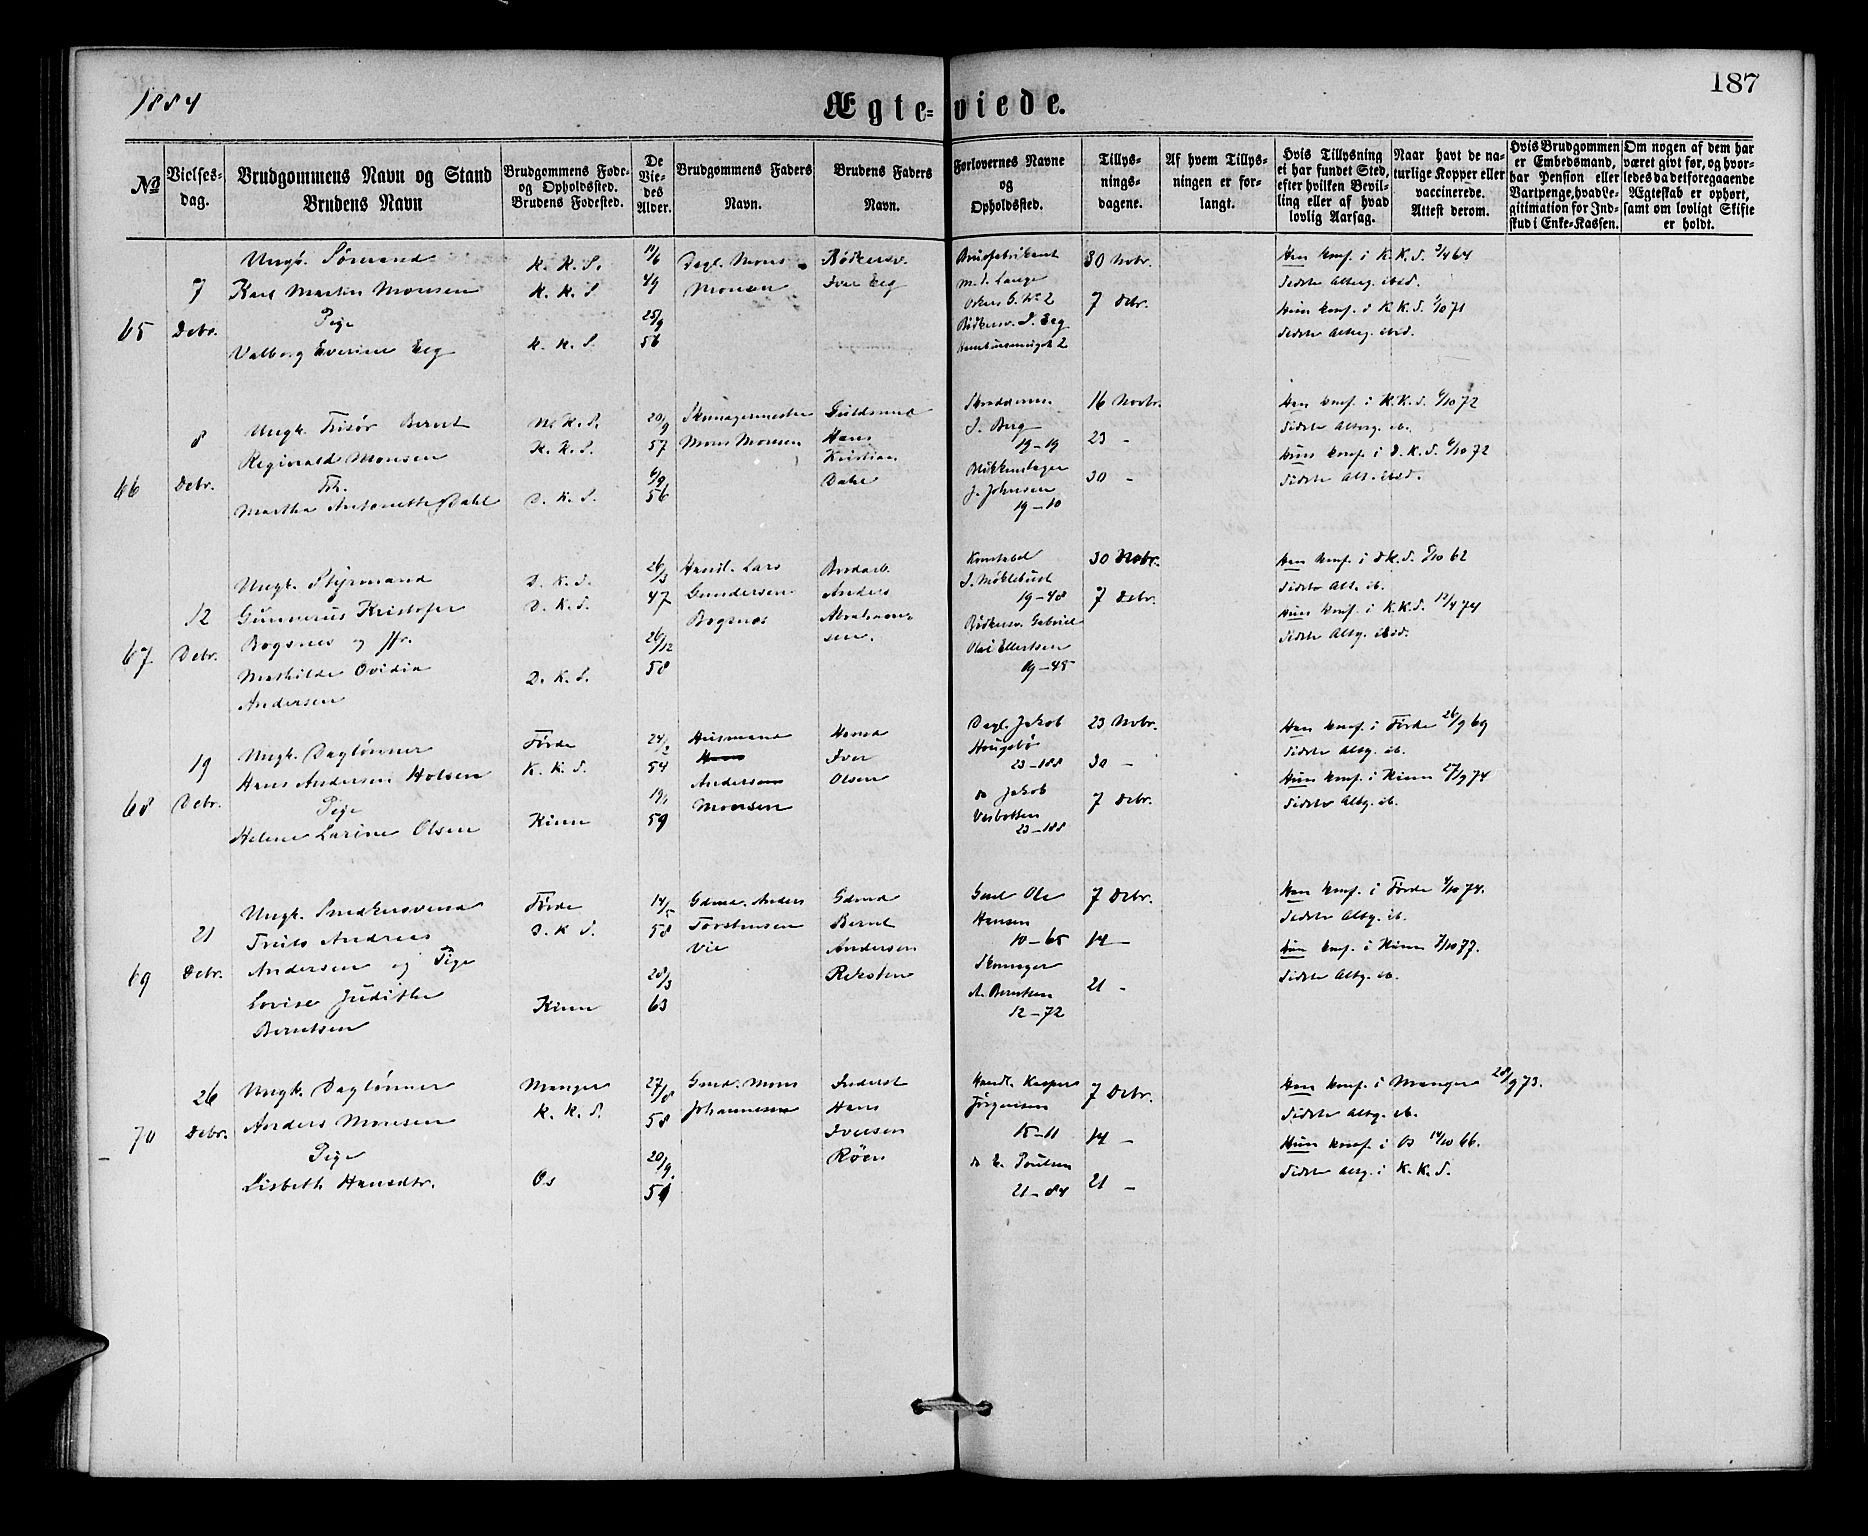 1884
Ægte-viede.
187
No
Vielses-
dag.
Brudgommens Navn og Stand
Brudens Navn
Brudgommens Føde-
og Opholdssted.
Brudens Fødested.
De
Vie-
des
Alder.
Brudgommens Faders
Navn.
Brudens Faders
Navn.
Forlovernes Navne
og
Opholdssted.
Tillys-
nings-
dagene.
Af hvem Tillys-
ningen er for-
langt.
Hvis Tillysning
ei har fundet Sted,
efter hvilken Bevil-
ling eller af hvad
lovlig Aarsag.
Naar havt de na-
turlige Kopper eller
vaccinerede.
Attest derom.
Hvis Brudgommen
er Embedsmand,
har Pension eller
Vartpenge, hvad Le-
gitimation for Ind-
skud i Enke-Kassen.
Om nogen af dem har
været givt før, og hvor-
ledes da det foregaaende
Ægteskab er ophørt,
samt om lovligt Skifte
er holdt.
65
7
Debr.
Ungk. Sømand
Karl Martin Monsen
Pige
Valborg Everine Eeg
K. K. S.
K. K. S.
K. K. S.
11/6
49
25/9
56
Dagl. Mons
Monsen
Bødkersv.
Iver Eeg
M. L. Lange
Bødkersv. I. Eeg
30 Novbr.
7 Debr.
Han konf. i K. K. S. 3/4 64
Sidste Altergg. ibid.
Hun konf. i K. K. S. 1/10 71
Sidste Alterg. ibid.
66
8
Debr.
Ungk. Frisør Bernt
Reginald Monsen
Frk.
Martha Antonette Dahl
N. K. S.
K. K. S.
D. K. S.
20/9
57
6/9
56
Skomagermester
Mons Monsen
Guldsmed
Hans
Kristian
Dahl
I. Berg
19-19
Blikkenslager
J. Johnsen
19-10
16 Novbr.
23 -
30 -
Han konf. i K. K. S. 6/10 72
Sidste Alterg. ib.
Hun konf. i D. K. S. 6/10 72
Sidste Alt. ibid.
67
12
Debr.
Ungk. Styrmand
Gunnerius Kristofer
Bogsnes og Jfr.
Mathilde Ovidia
Andersen
D. K. S.
D. K. S.
D. K. S.
26/3
47
26/12
58
Handl. Lars
Gundersen
Bogsnes
Anders
Abraham-
sen.
Konstabel
I. Møklebust
19-48
Bødkersv. Gabriel
Olai Ellertsen
19-45
30 Nobr.
7 Debr.
Han konf. i D.K.S. 5/10 62
Sidste Alt. ib.
Hun konf. i K.K.S. 12/4 74
Sidste Altg. ibid.
68
19
Debr.
Ungk. Daglønner
Hans Andersen Holsen
Pige
Helene Larine Olsen
Førde
K. K. S.
Kinn
24/2
54
59
Husmand
Andersen
Monsen
Iver
Olsen
Dagl. Jakob
Hougsbø
23-188
do Jakob
23-188
23 Nobr.
30 -
7 Debr.
Han konf. i Førde 26/9 69
Sidste Altg. ib.
Hun konf. i Kinn 27/9 74
Sidste Altg. ib.
69
21
Debr.
Ungk. Snedkersvend
Truls Andreas
Andersen og Pige
Lovise Judithe
Berntsen
Førde
D. K. S.
Kinn
14/5
58
28/3
63
Gdmd. Anders
Torstensen
Vie
Gdmd
Bernt
Andersen
Reksten
Ole
Hansen
10-65
Skomager
A. Berntsen
12-72
7 Debr.
14 -
21 -
Han konf. i Førde 4/10 74.
Sidste Altg. ib.
Hun konf. i Kinn 7/10 77.
Sidste Altg. ib.
70
26
Debr.
Ungk. Daglønner
Anders Monsen
Pige
Lisbeth Hansdtr.
Manger
K. K. S.
Os
27/8
58
20/9.
51
Gmd. Mons
Johannesen
Inderst
Hans
Iversen
Røen
Handl. Kasper
Jørgensen
15-11
do E. Poulsen
21-84
7 Debr.
14 -
21 -
Han konf. i Manger 28/9 73.
Sidste Altg. ib.
Hun konf. i Os 14/10 66.
Sidste Altg. i K. K. S.